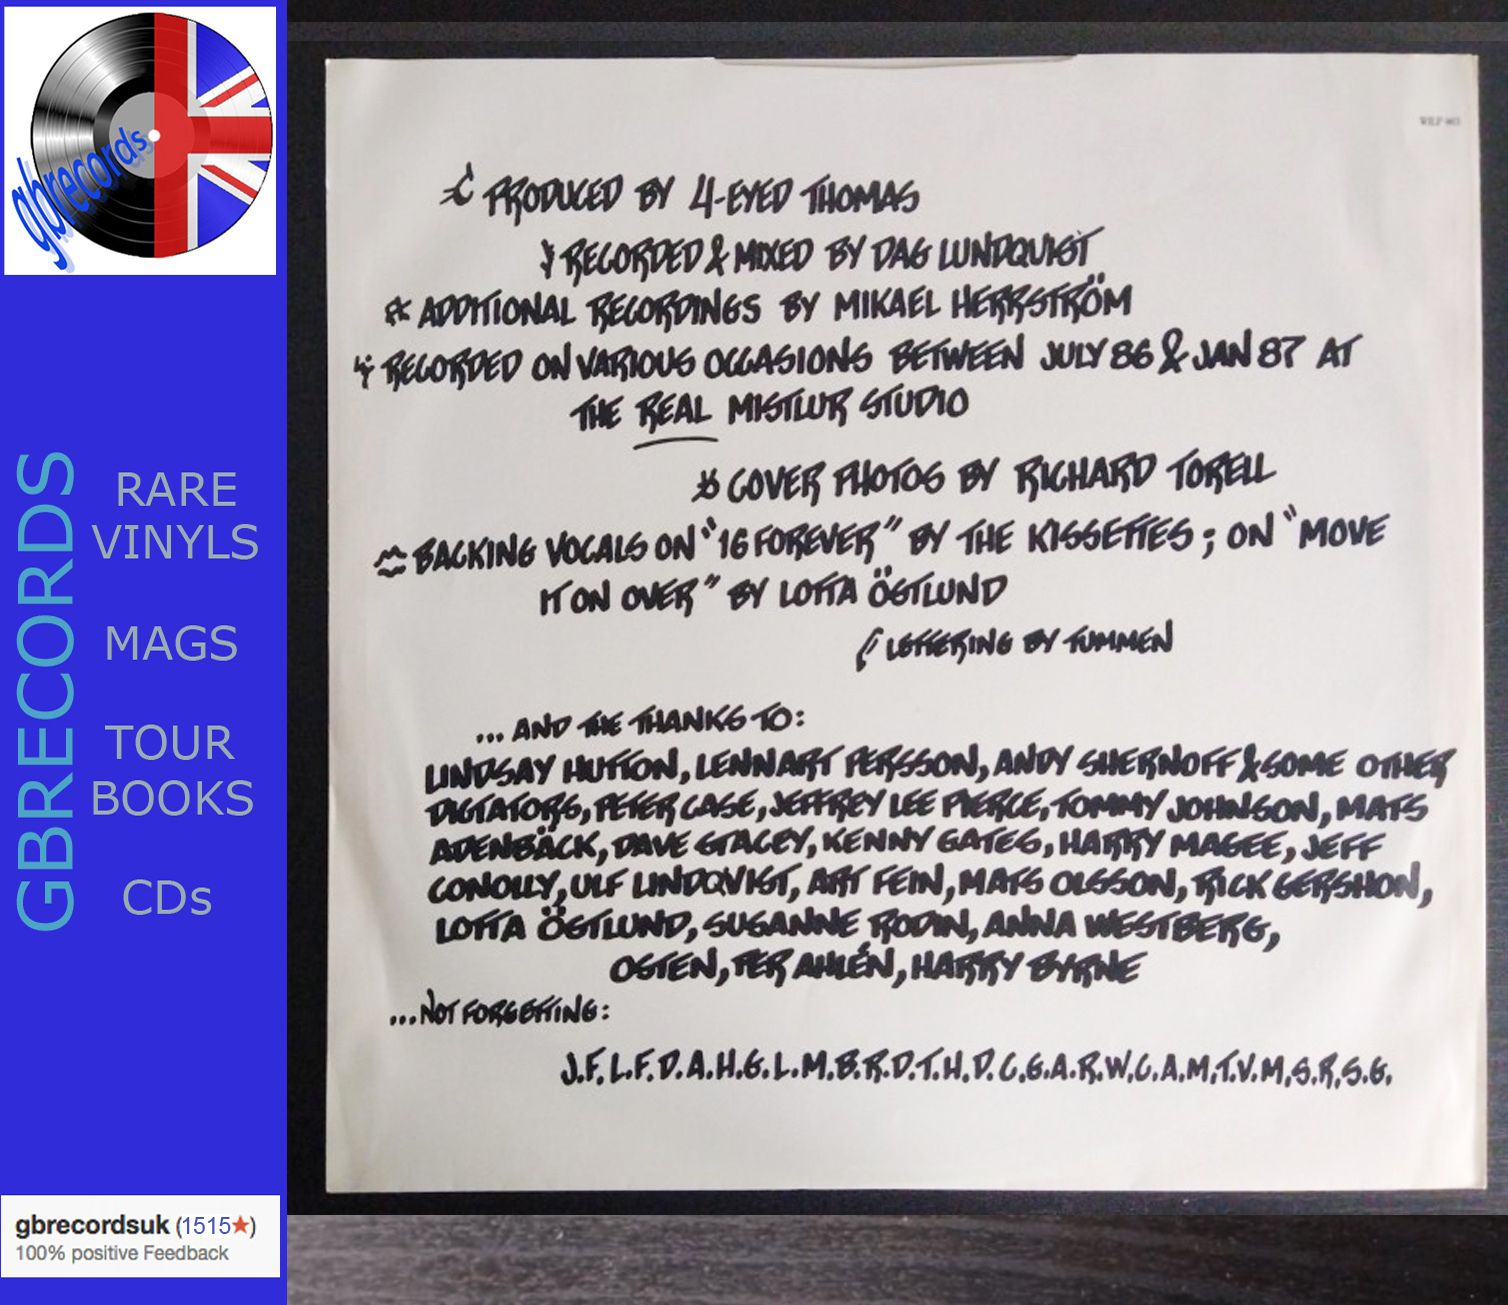 gbrecords
GBRECORDS
RARE
VINYLS
MAGS
TOUR
BOOKS
CDs
gbrecordsuk (1515★)
100% positive Feedback
PRODUCED BY 4-EYED THOMAS
RECORDED & MIXED BY DAG LUNDQUIST
ADDITIONAL RECORDINGS BY MIKAEL HERRSTRÖM
RECORDED ON VARIOUS OCCASIONS BETWEEN JULY 86 & JAN 87 AT
THE REAL MISTLUR STUDIO
COVER PHOTOS BY RICHARD TORELL
BACKING VOCALS ON "16 FOREVER" BY THE KISSETTES; ON "MOVE
IT ON OVER" BY LOTTA ÖSTLUND
LETTERING BY TUMMEN
... AND THE THANKS TO:
LINDSAY HUTTON, LENNART PERSSON, ANDY SHERNOFF & SOME OTHER
DICTATORS, PETER CASE, JEFFREY LEE PIERCE, TOMMY JOHNSON, MATS
ADENBÄCK, DAVE STACEY, KENNY GATES, HARRY MAGEE, JEFF
CONOLLY, ULF LINDQVIST, ART FEIN, MATS OLSSON, RICK GERSHON,
LOTTA ÖSTLUND, SUSANNE RODIN, ANNA WESTBERG,
OSTEN, PER AHLÉN, HARRY BYRNE
...NOT FORGETTING:
J.F.L.F.D.A.H.G.L.M.B.R.D.T.H.D.C.G.A.R.W.C.A.M.T.V.M.S.R.S.G.